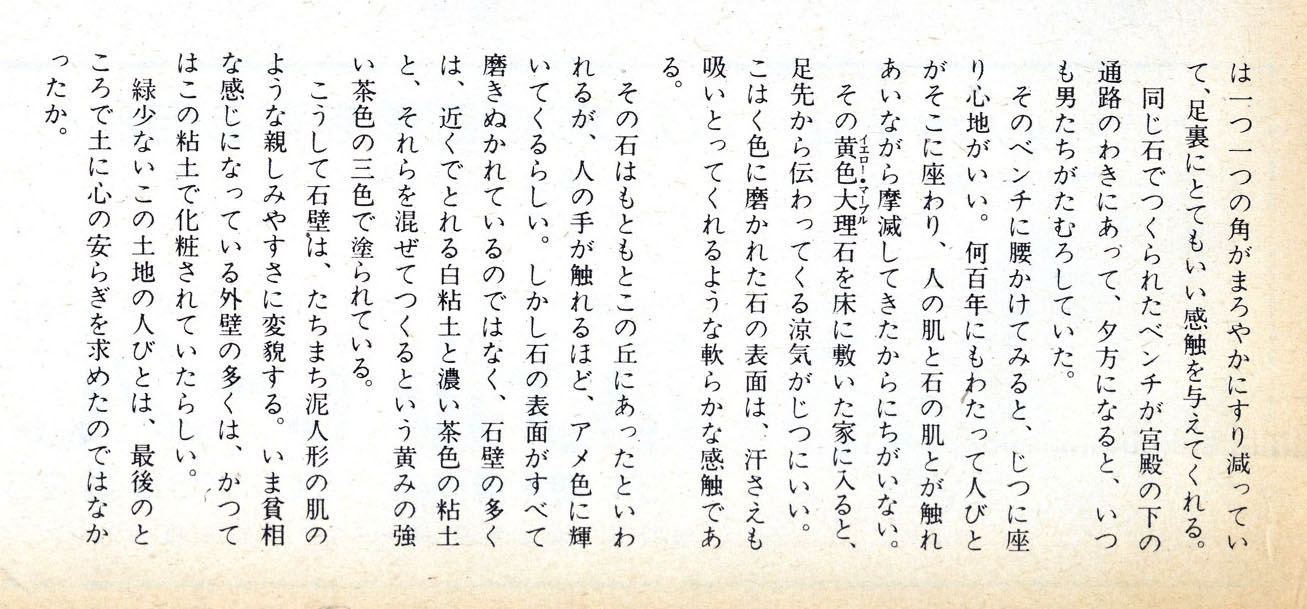 は一つ一つの角がまろやかにすり減ってい
て、足裏にとてもいい感触を与えてくれる。
同じ石でつくられたベンチが宮殿の下の
通路のわきにあって、夕方になると、いつ
も男たちがたむろしていた。
そのベンチに腰かけてみると、じつに座
り心地がいい。何百年にもわたって人びと
がそこに座わり、人の肌と石の肌とが触れ
あいながら摩滅してきたからにちがいない。
イエロー・マーブル
その黄色大理石を床に敷いた家に入ると、
足先から伝わってくる涼気がじつにいい。
こはく色に磨かれた石の表面は、汗さえも
吸いとってくれるような軟らかな感触であ
る。
その石はもともとこの丘にあったといわ
れるが、人の手が触れるほど、アメ色に輝
いてくるらしい。しかし石の表面がすべて
磨きぬかれているのではなく、石壁の多く
は、近くでとれる白粘土と濃い茶色の粘土
と、それらを混ぜてつくるという黄みの強
い茶色の三色で塗られている。
こうして石壁は、たちまち泥人形の肌の
ような親しみやすさに変貌する。いま貧相
な感じになっている外壁の多くは、かつて
はこの粘土で化粧されていたらしい。
緑少ないこの土地の人びとは、最後のと
ころで土に心の安らぎを求めたのではなか
ったか。